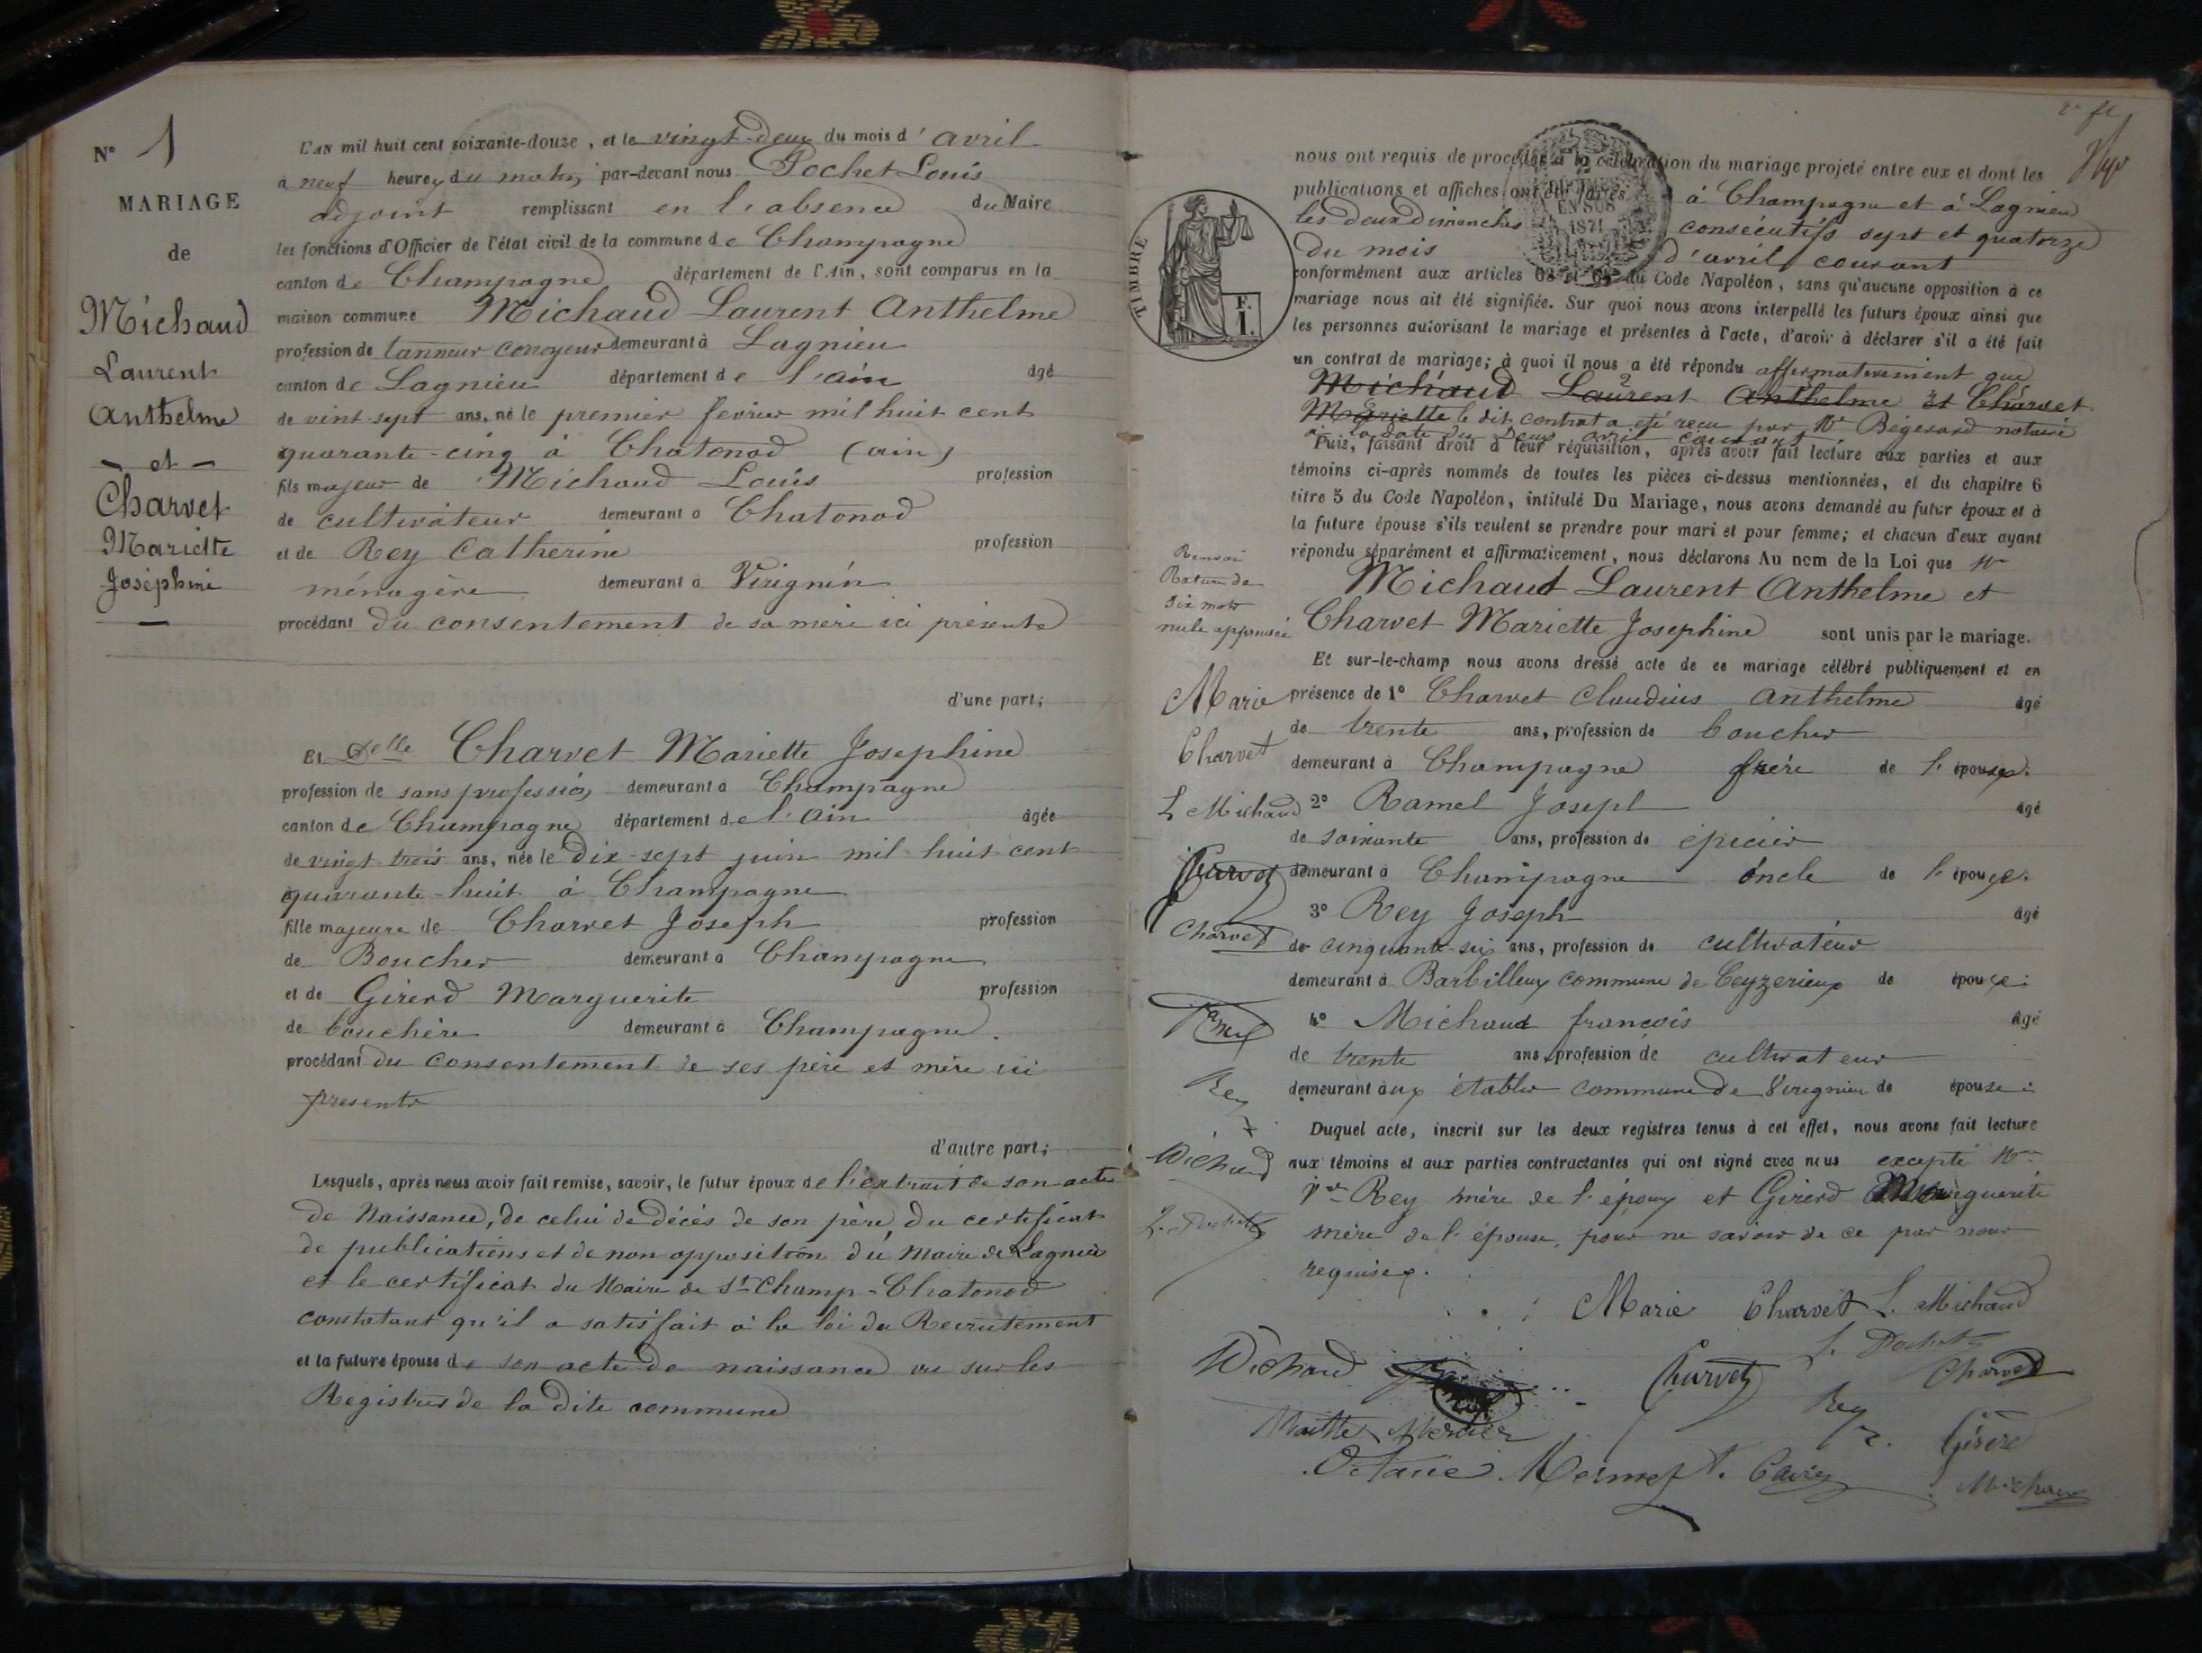 N° 1
MARIAGE
de
Michaud
Laurent
Anthelme
et
Charvet
Mariette
Joséphine
L'AN mil huit cent soixante-douze, et le vingt-deux du mois d'avril
à neuf heures du matin, par-devant nous Pochet Louis
adjoint remplissant en l'absence du Maire
les fonctions d'Officier de l'état civil de la commune de Champagne
canton de Champagne département de l'Ain, sont comparus en la
maison commune Michaud Laurent Anthelme
profession de tanneur corroyeur demeurant à Lagnieu
canton de Lagnieu département de l'ain âgé
de vint sept ans, né le premier fevrier mil huit cent
quarante-cinq à Chatonod (ain)
fils majeur de Michaud Louis profession
de cultivateur demeurant à Chatonod
et de Rey Catherine profession
ménagère demeurant à Virignin
procédant du consentement de sa mère ici présente
d'une part;
Et Delle Charvet Mariette Josephine
profession de sans profession demeurant à Champagne
canton de Champagne département de l'Ain âgée
de vingt trois ans, née le Dix-sept juin mil huit cent
quarante-huit à Champagne
fille majeure de Charvet Joseph profession
de Boucher demeurant à Champagne
et de Girerd Marguerite profession
de bouchère demeurant à Champagne.
procédant du consentement de ses père et mère ici
presents
d'autre part;
Lesquels, après nous avoir fait remise, savoir, le futur époux de l'extrait de son acte
de Naissance, de celui de décès de son père, du certificat
de publications et de non opposition du Maire de Lagnieu
et le certificat du Maire de St Champ-Chatonod
constatant qu'il a satisfait à la loi du Recrutement
et la future épouse de son acte de naissance vu sur les
Registres de la dite commune
nous ont requis de procéder à la célébration du mariage projeté entre eux et dont les
publications et affiches ont été faites à Champagne et à Lagnieu
les deux Dimanches consécutifs sept et quatorze
du mois d'avril courant
conformément aux articles 63 et 64 du Code Napoléon, sans qu'aucune opposition à ce
mariage nous ait été signifiée. Sur quoi nous avons interpellé les futurs époux ainsi que
les personnes autorisant le mariage et présentes à l'acte, d'avoir à déclarer s'il a été fait
un contrat de mariage; à quoi il nous a été répondu affirmativement que
Michaud Laurent Anthelme et Charvet
Mariette le dit contrat a été reçu par Me notaire
à la date du deux avril courant
Puis, faisant droit à leur réquisition, après avoir fait lecture aux parties et aux
témoins ci-après nommés de toutes les pièces ci-dessus mentionnées, et du chapitre 6
titre 5 du Code Napoléon, intitulé Du Mariage, nous avons demandé au futur époux et à
la future épouse s'ils veulent se prendre pour mari et pour femme; et chacun d'eux ayant
répondu séparément et affirmativement, nous déclarons Au nom de la Loi que
Michaud Laurent Anthelme et
Charvet Mariette Josephine sont unis par le mariage.
Et sur-le-champ nous avons dressé acte de ce mariage célébré publiquement et en
présence de 1° Charvet Claudius Anthelme âgé
de trente ans, profession de boucher
demeurant à Champagne frère de l'épouse.
2° Ramel Joseph âgé
de soixante ans, profession de épicier
demeurant à Champagne oncle de l'épouse.
3° Rey Joseph âgé
de cinquante-six ans, profession de cultivateur
demeurant à Barbilleux commune de Ceyzerieux de épouse.
4° Michaud françois âgé
de trente ans, profession de cultivateur
demeurant aux établer commune de Viregnin de épouse.
Duquel acte, inscrit sur les deux registres tenus à cet effet, nous avons fait lecture
aux témoins et aux parties contractantes qui ont signé avec nous excepté
Rey mère de l'époux et Girerd Marguerite
mère de l'épouse, pour ne savoir de ce par nous
requises.
Marie Charvet L. Michaud
L. Pochet
Michaud Charvet Charvet
Rey
Mermet Girerd
Michaud
TIMBRE
F.
1.
EN SUS
1871
mots
Marie
Charvet
L Michaud
Charvet
Charvet
Ramel
Rey
Michaud
L. Pochet